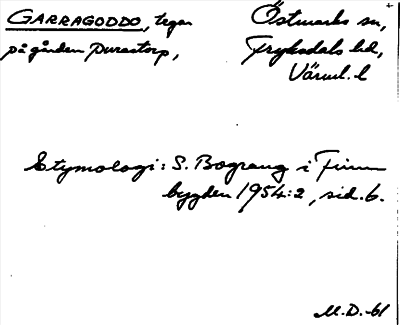 GARRAGODDO, tegar
på gården Purastorp,
Östmarks sn,
Fryksdals hd,
Värml. l
Etymologi: S. Bograng i Finn
bygden 1954:2, sid. 6.
M.D.-61